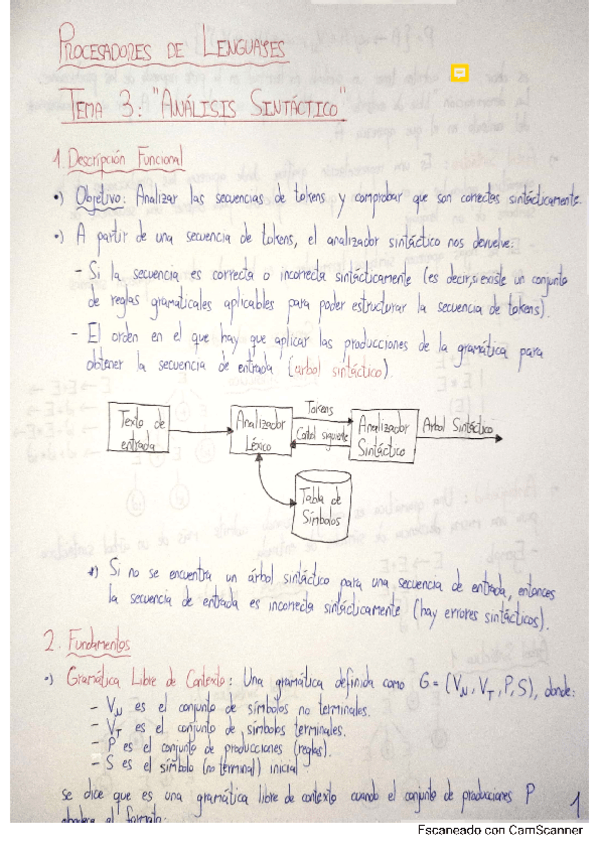 PROCESADORES DE LENGUAJES
TEMA 3: "ANÁLISIS SINTÁCTICO"
1. Descripción Funcional
•) Objetivo: Analizar las secuencias de tokens y comprobar que son correctas sintácticamente.
•) A partir de una secuencia de tokens, el analizador sintáctico nos devuelve:
- Si la secuencia es correcta o incorrecta sintácticamente (es decir, si existe un conjunto
de reglas gramaticales aplicables para poder estructurar la secuencia de tokens).
- El orden en el que hay que aplicar las producciones de la gramática para
obtener la secuencia de entrada (arbol sintáctico)
Texto de
entrada
Analizador
Léxico
Tokens
siguiente
Analizador
Sintáctico
Arbol Sintáctico
Tabla de
Símbolos
*) Si no se encuentra un árbol sintáctico para una secuencia de entrada, entonces
la secuencia de entrada es incorrecta sintácticamente (hay errores sintácticos).
2. Fundamentos
•) Gramática Libre de Contexto: Una gramática definida como G = (VN, VT, P, S), donde:
- VN es el conjunto de símbolos no terminales.
- VT es el conjunto de símbolos terminales.
- P es el conjunto de producciones (reglas).
- S es el símbolo (no terminal) inicial
se dice que es una gramática libre de contexto cuando el conjunto de producciones P
el formato:
1
Escaneado con CamScanner